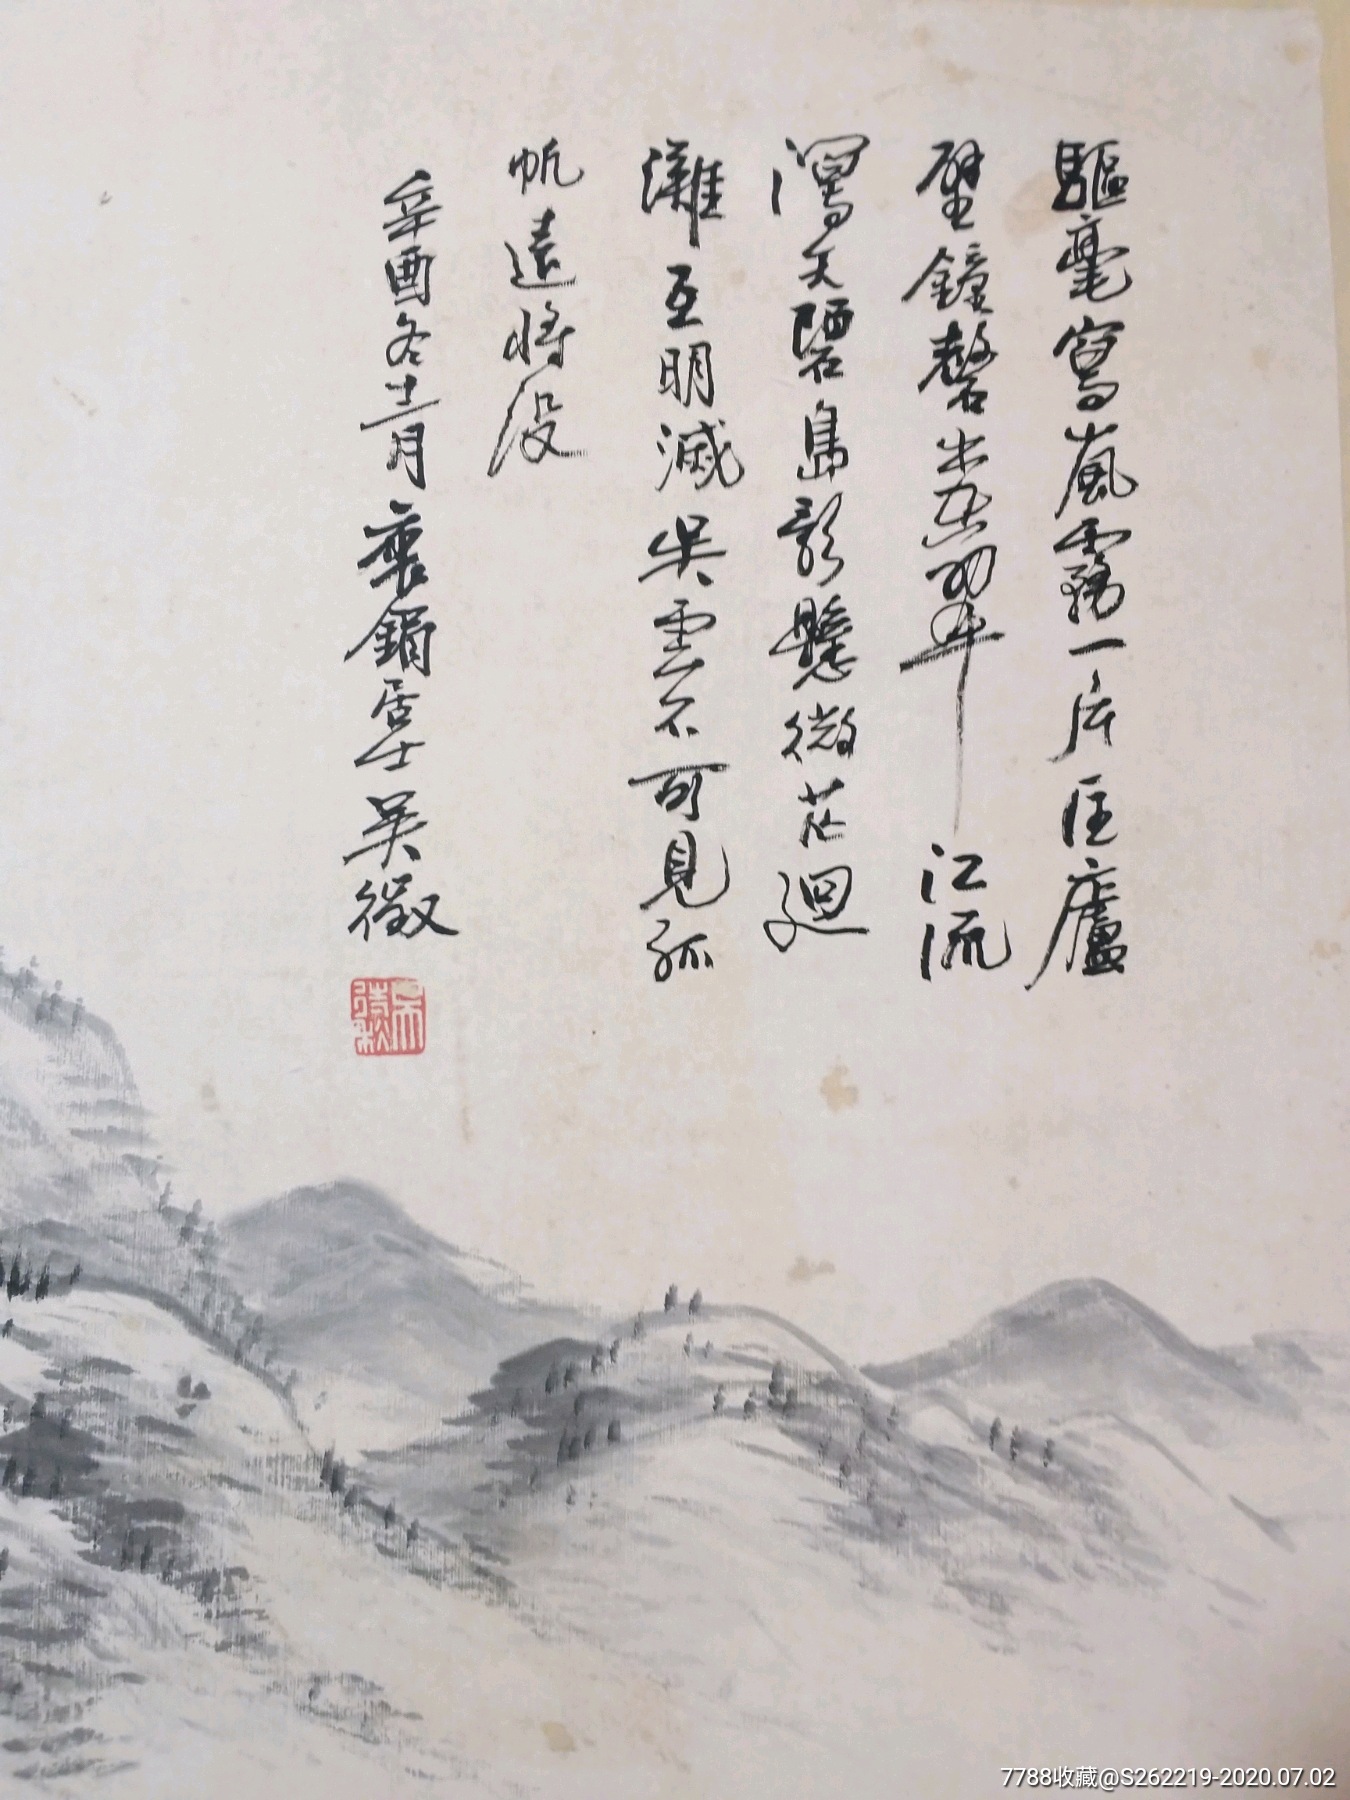 驅毫寫嵐霧一片匡廬
壁鐘磬出空翠江流
瀉天碧島影懸微茫迴
灘互明滅吳雲不可見孤
帆遠將没
辛酉冬十二月褱鋗居士吳徵
吳
7788收藏@S262219-2020.07.02